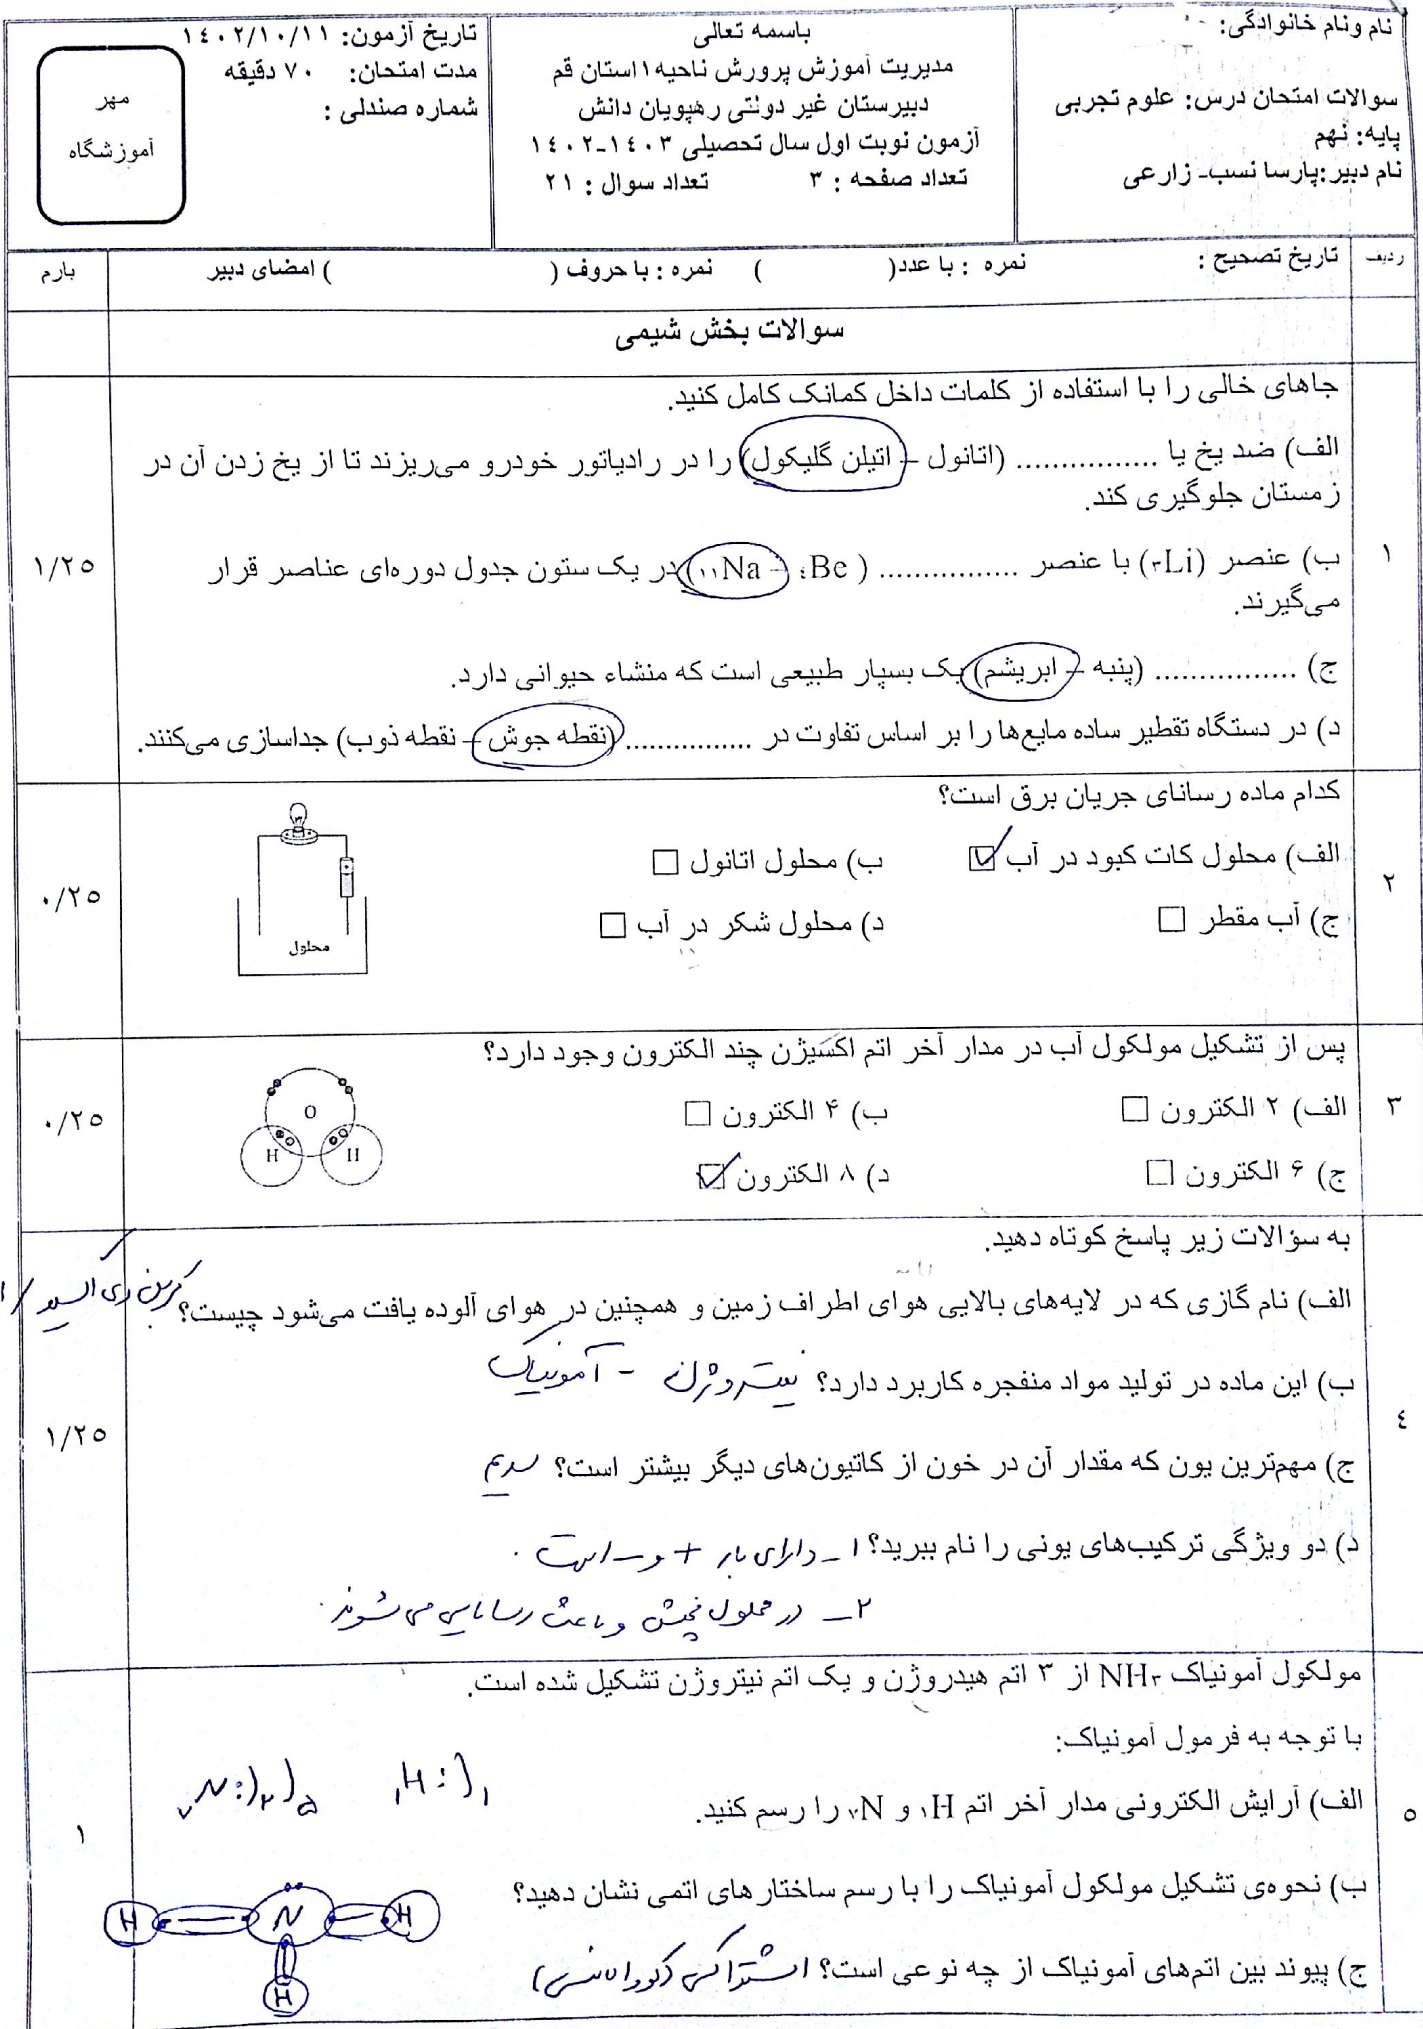 نام ونام خانوادگی:
سوالات امتحان درس: علوم تجربی
پایه: نهم
نام دبیر:پارسا نسب- زارعی
باسمه تعالی
مدیریت آموزش پرورش ناحیه ۱استان قم
دبیرستان غیر دولتی رهپویان دانش
آزمون نوبت اول سال تحصیلی ۱۴۰۳-۱۴۰۲
تعداد صفحه : ۳ تعداد سوال : ۲۱
تاریخ آزمون: ۱۴۰۲/۱۰/۱۱
مدت امتحان: ۷۰ دقیقه
شماره صندلی :
مهر
آموزشگاه
ردیف تاریخ تصحیح : نمره : با عدد( ) نمره : با حروف ( ) امضای دبیر بارم
سوالات بخش شیمی
۱
جاهای خالی را با استفاده از کلمات داخل کمانک کامل کنید.
الف) ضد یخ یا ................ (اتانول – اتیلن گلیکول) را در رادیاتور خودرو می‌ریزند تا از یخ زدن آن در
زمستان جلوگیری کند.
ب) عنصر (۳Li) با عنصر ................ ( ۴Be – ۱۱Na) در یک ستون جدول دوره‌ای عناصر قرار
می‌گیرند.
ج) ................ (پنبه – ابریشم) یک بسپار طبیعی است که منشاء حیوانی دارد.
د) در دستگاه تقطیر ساده مایع‌ها را بر اساس تفاوت در ............... (نقطه جوش – نقطه ذوب) جداسازی می‌کنند.
۱/۲۵
۲
کدام ماده رسانای جریان برق است؟
الف) محلول کات کبود در آب ☑ ب) محلول اتانول □
ج) آب مقطر □ د) محلول شکر در آب □
محلول
۰/۲۵
۳
پس از تشکیل مولکول آب در مدار آخر اتم اکسیژن چند الکترون وجود دارد؟
الف) ۲ الکترون □ ب) ۴ الکترون □
ج) ۶ الکترون □ د) ۸ الکترون ☑
O
H H
۰/۲۵
۴
به سؤالات زیر پاسخ کوتاه دهید.
الف) نام گازی که در لایه‌های بالایی هوای اطراف زمین و همچنین در هوای آلوده یافت می‌شود چیست؟ کربن دی اکسید
ب) این ماده در تولید مواد منفجره کاربرد دارد؟ نیتروژن - آمونیاک
ج) مهم‌ترین یون که مقدار آن در خون از کاتیون‌های دیگر بیشتر است؟ سدیم
د) دو ویژگی ترکیب‌های یونی را نام ببرید؟ ۱- دارای بار + و - است .
۲- در محلول پخش و باعث رسانایی می شوند.
۱/۲۵
۵
مولکول آمونیاک NH۳ از ۳ اتم هیدروژن و یک اتم نیتروژن تشکیل شده است.
با توجه به فرمول آمونیاک:
الف) آرایش الکترونی مدار آخر اتم ۱H و ۷N را رسم کنید.
۱H:)۱ ۷N:)۲)۵
ب) نحوه‌ی تشکیل مولکول آمونیاک را با رسم ساختارهای اتمی نشان دهید؟
H N H
H
ج) پیوند بین اتم‌های آمونیاک از چه نوعی است؟ اشتراکی (کووالانسی)
۱